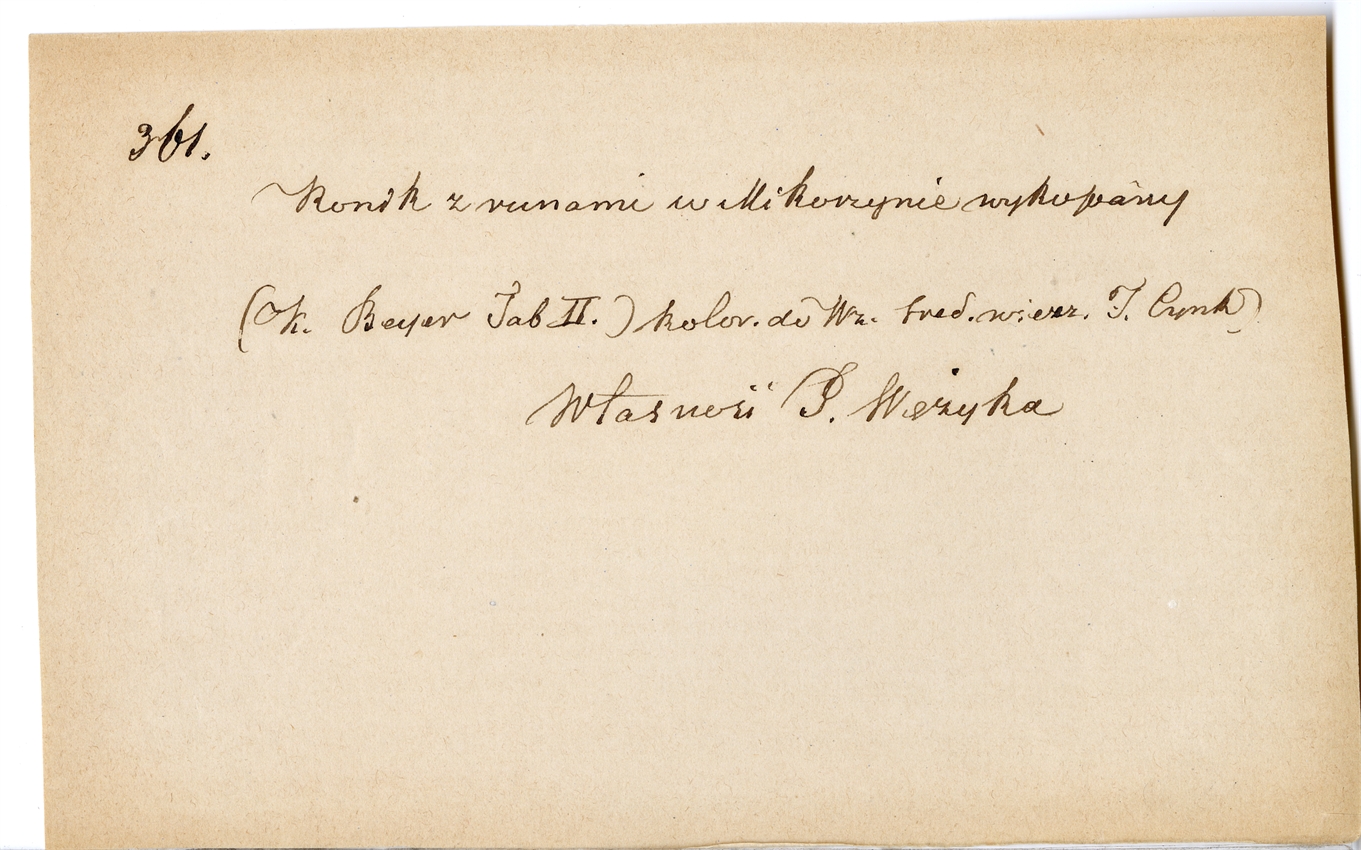 361.
Konik z runami w Mikorzynie wykopany
(K. Beyer Tab II.) kolor. do Wz. sred. wiecz. T. Cynk)
Własność P. Wężyka